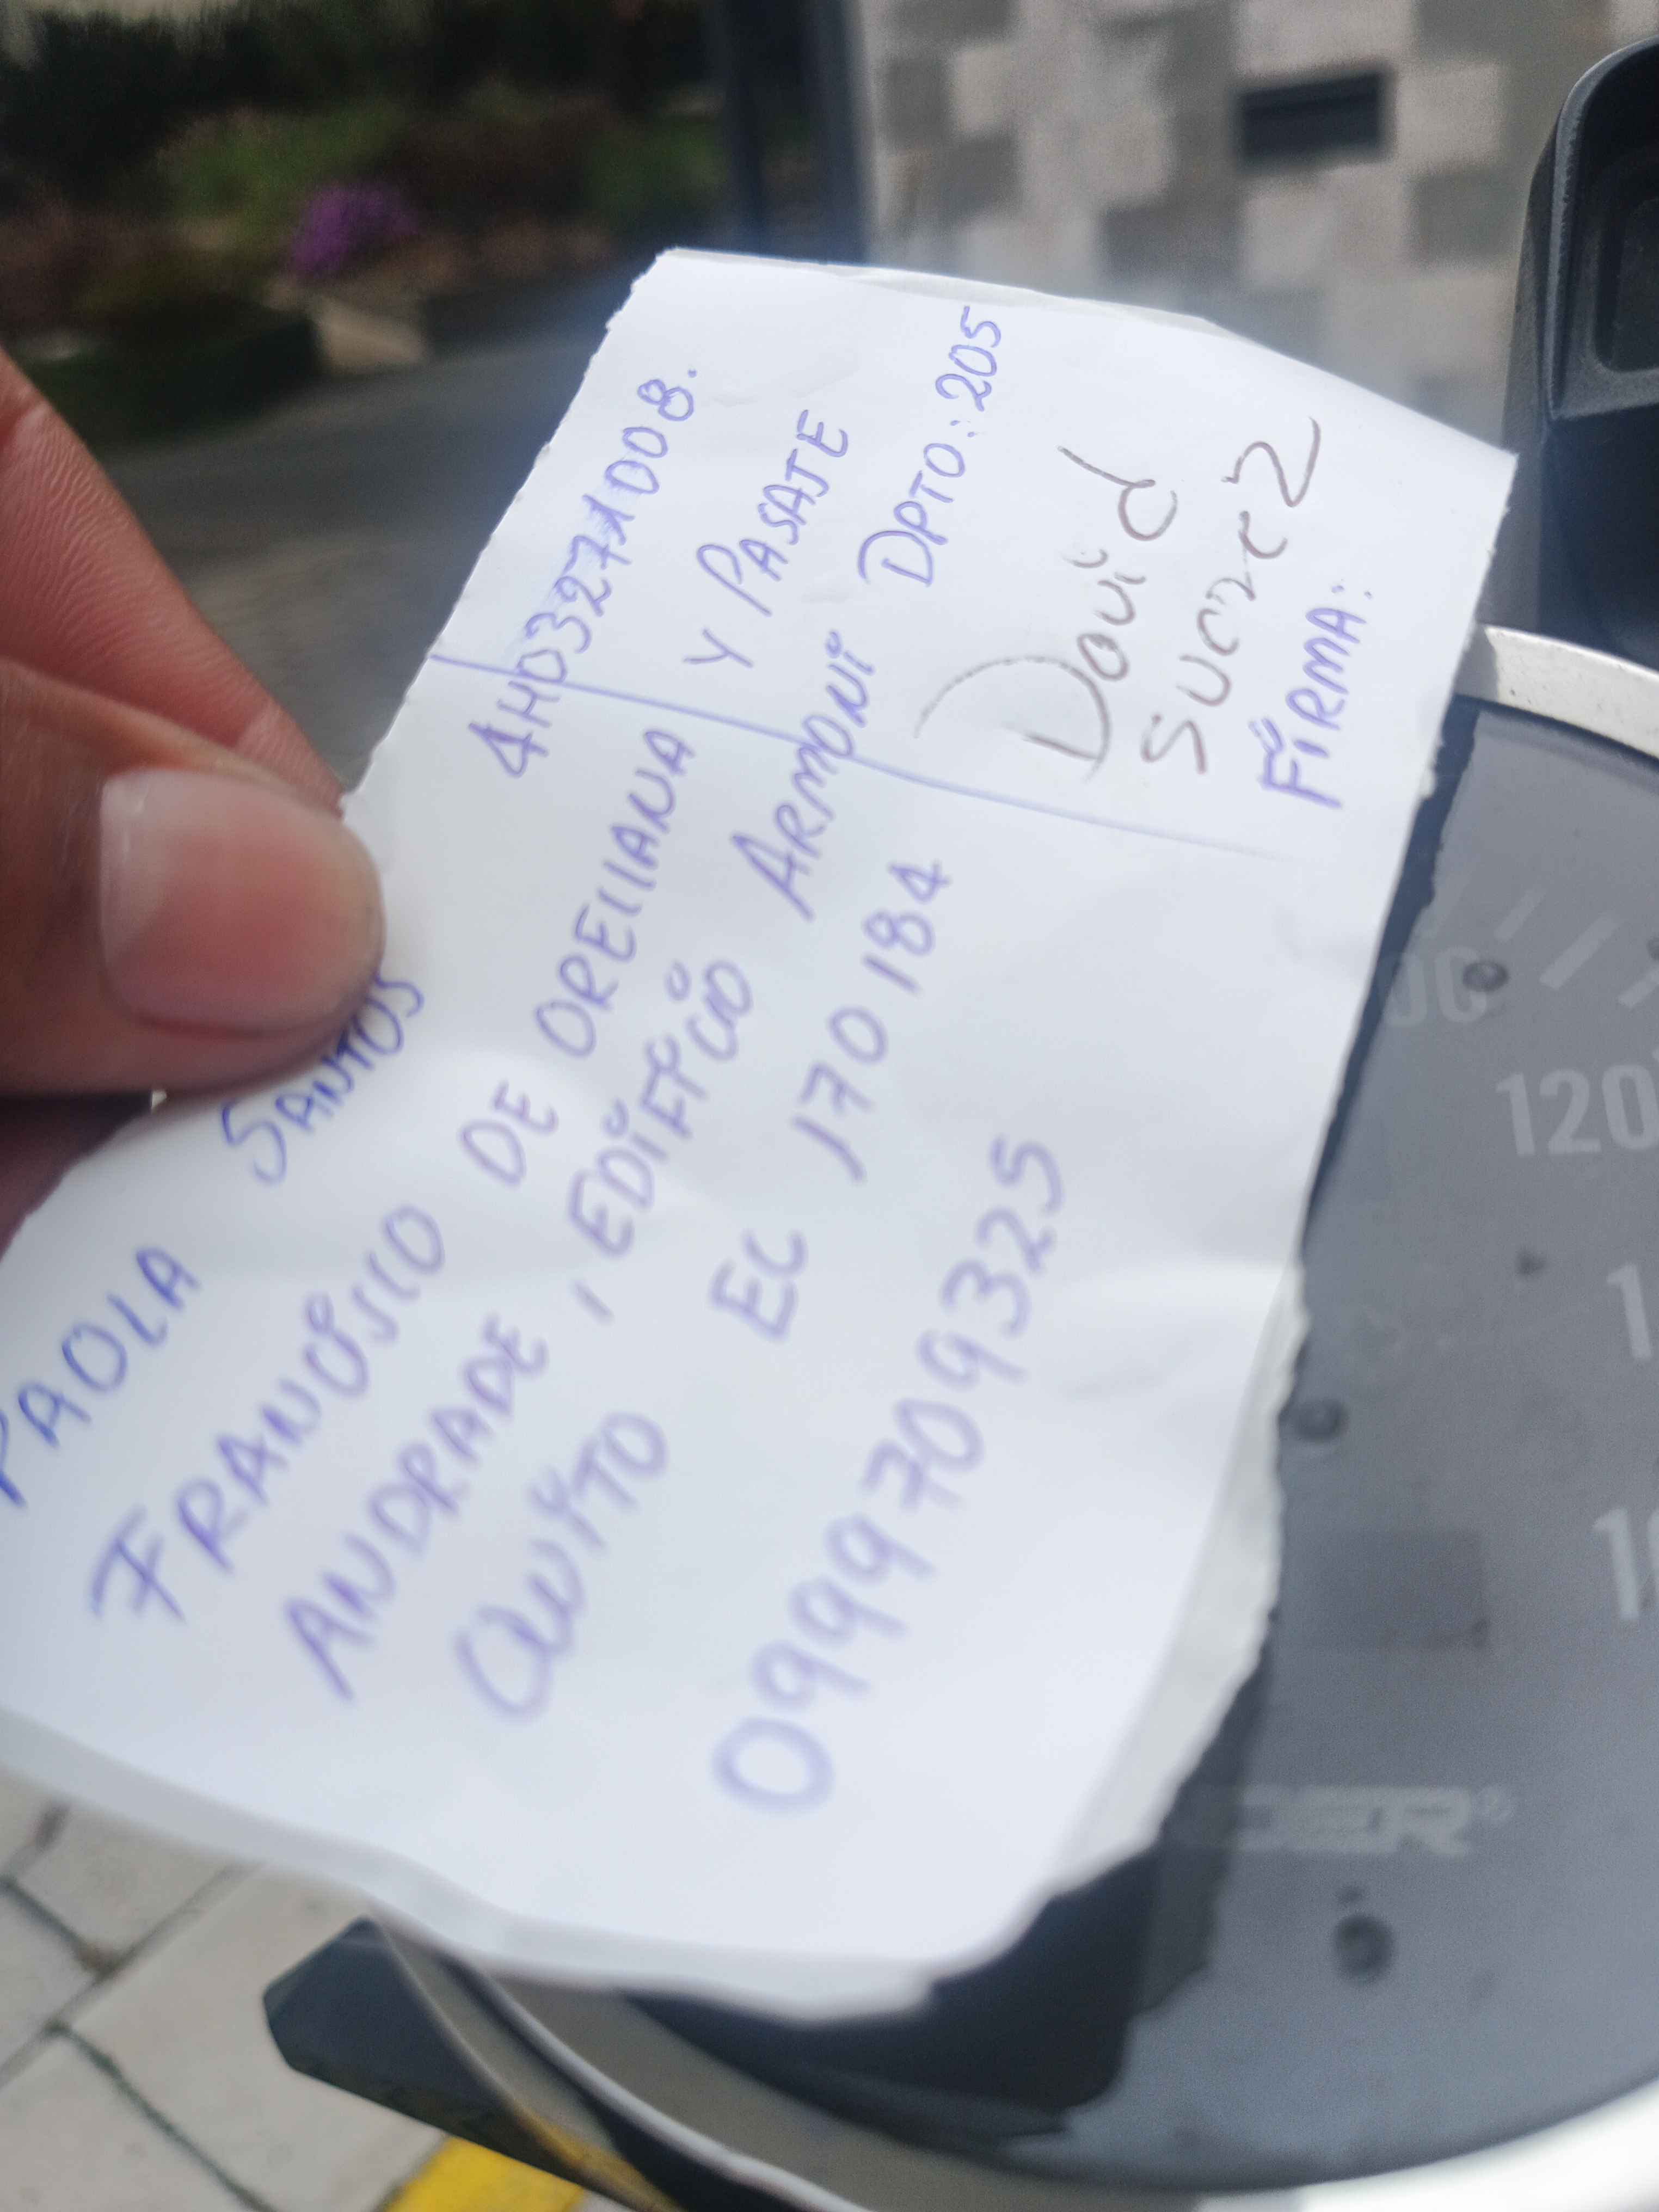 PAOLA SANTOS 4H03271008.
FRANCISCO DE ORELLANA Y PASAJE
ANDRADE, EDIFICIO ARMONI DPTO: 205
QUITO EC 170184
0999709325
David
Suarez
FIRMA:
120
DER